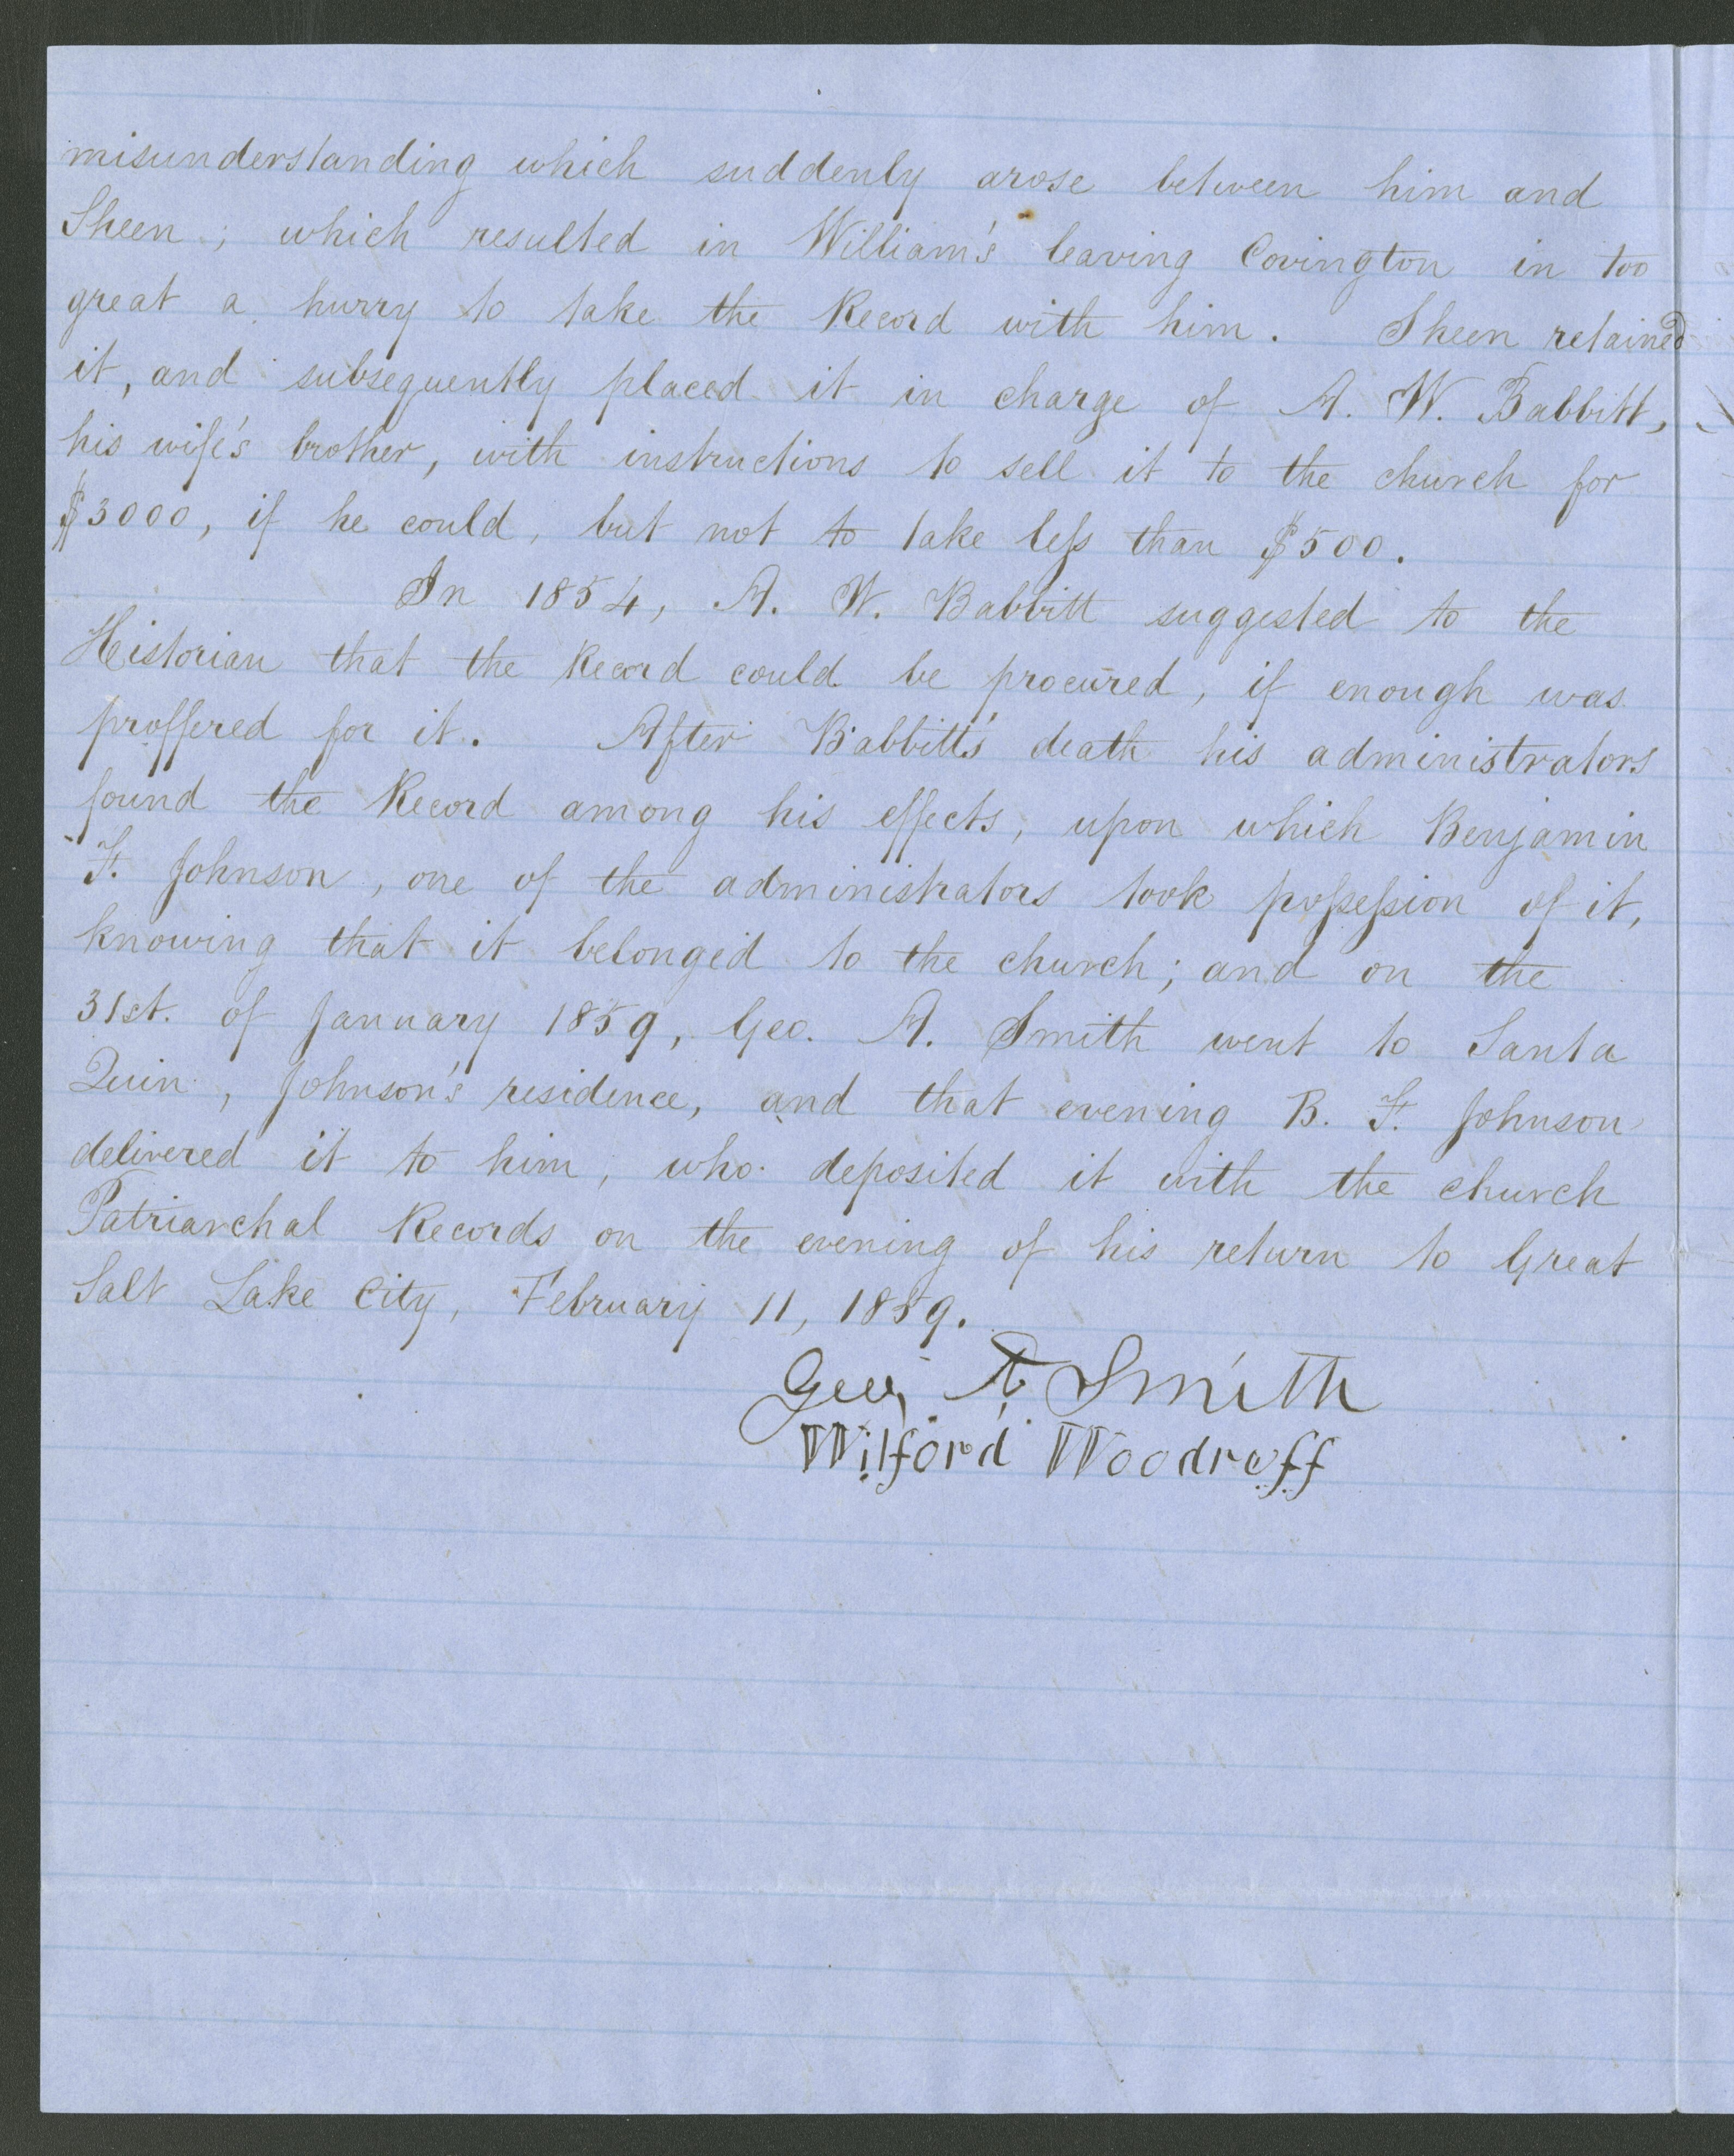 misunderstanding which suddenly arose between him and
Sheen; which resulted in William's leaving Covington in too
great a hurry to take the Record with him. Sheen retained
it, and subsequently placed it in charge of A. W. Babbitt,
his wife's brother, with instructions to sell it to the church for
$3000, if he could, but not to take less than $500.
In 1854, A. W. Babbitt suggested to the
Historian that the Record could be procured, if enough was
proffered for it. After Babbitt's death his administrators
found the Record among his effects, upon which Benjamin
F. Johnson, one of the administrators took possession of it,
knowing that it belonged to the church; and on the
31st. of January 1859, Geo. A. Smith went to Santa
Quin, Johnson's residence, and that evening B. F. Johnson
delivered it to him, who deposited it with the church
Patriarchal Records on the evening of his return to Great
Salt Lake City, February 11, 1859.
Geo. A Smith
Wilford Woodruff